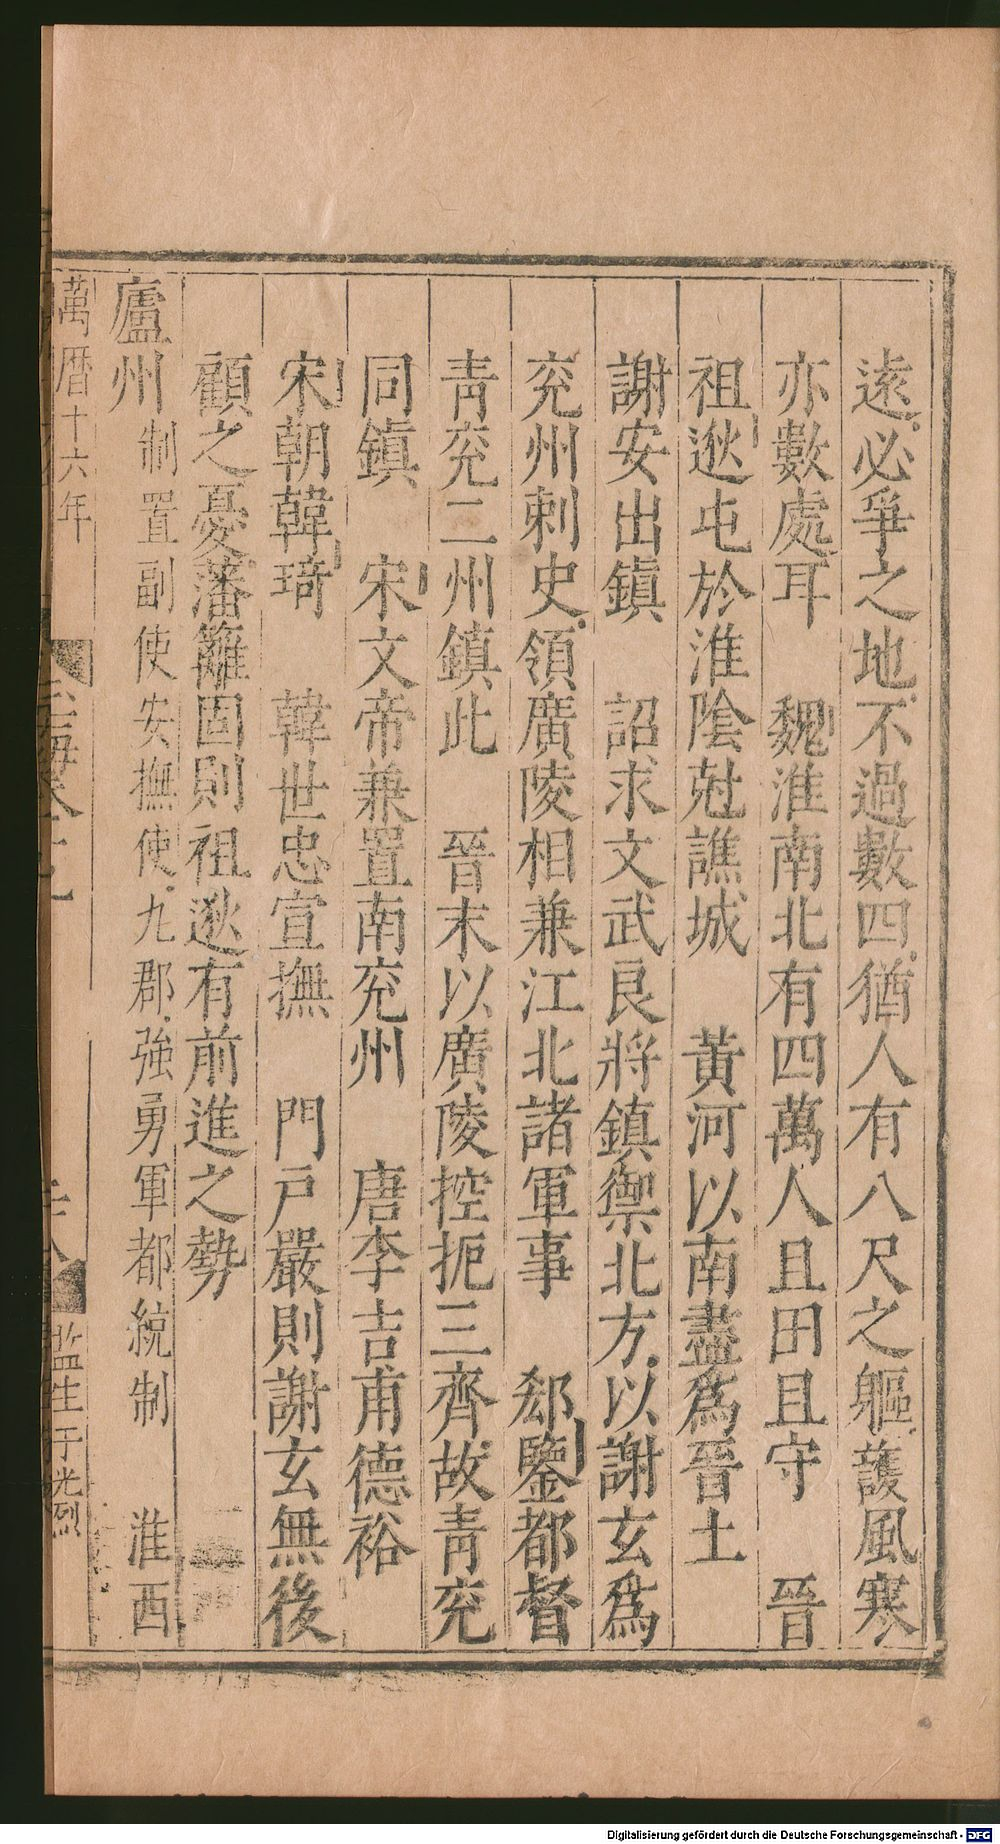 遠必爭之地不過數四猶人有八尺之軀護風寒
亦數處耳　魏淮南北有四萬人且田且守　晉
祖逖屯於淮陰尅譙城　黃河以南盡爲晉土
謝安出鎮　詔求文武良將鎮禦北方以謝玄爲
兗州刺史領廣陵相兼江北諸軍事　郄鑒都督
青兗二州鎮此　晉末以廣陵控扼三齊故青兗
同鎮　宋文帝兼置南兗州　唐李吉甫德裕
宋朝韓琦　韓世忠宣撫　門戸嚴則謝玄無後
顧之憂藩籬固則祖逖有前進之勢
廬州制置副使安撫使九郡強勇軍都統制　淮西
萬曆十六年
監生于光烈
Digitalisierung gefördert durch die Deutsche Forschungsgemeinschaft - DFG